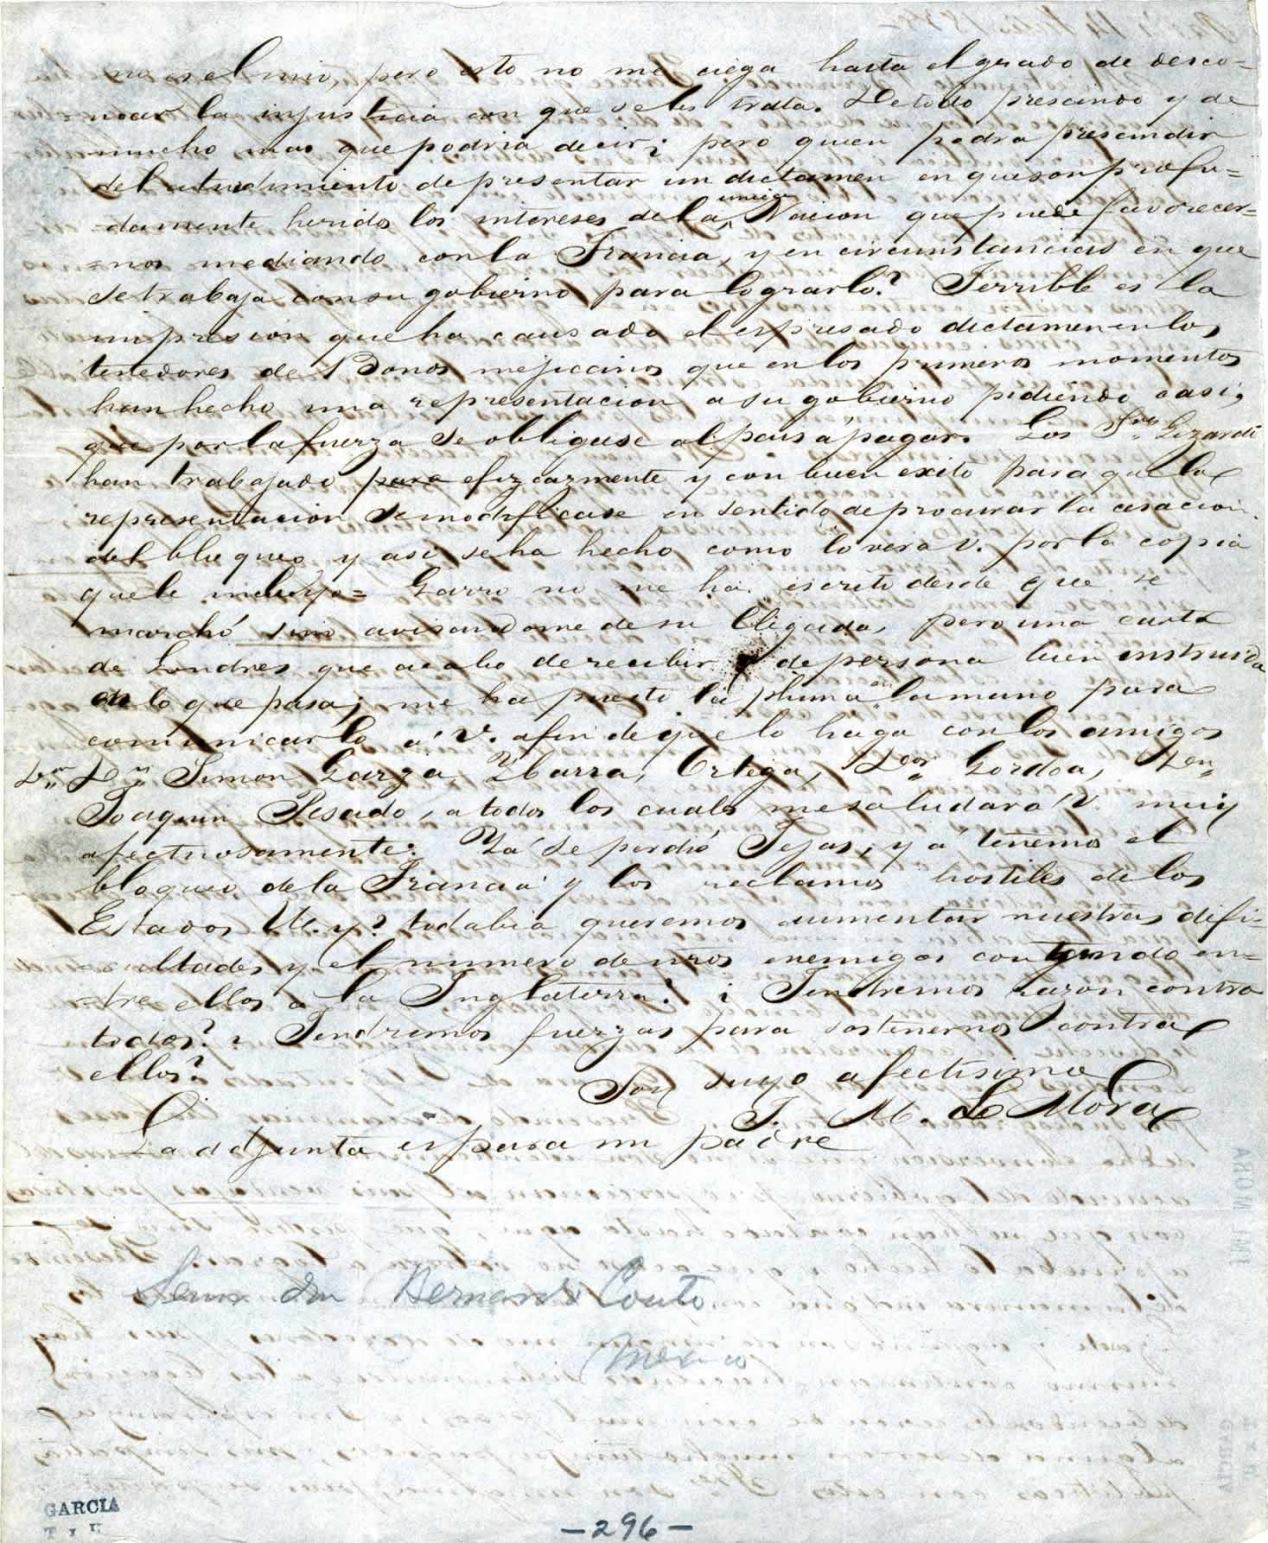 no es el mio, pero esto no me ciega hasta el grado de desco-
nocer la injusticia con que se les trata. De todo prescindo y de
mucho mas que podria decir; pero quien podra prescindir
del atudimiento de presentar un dictamen en que son profu-
damente heridos los intereses de la unica Nacion que puede favorecer-
=nos mediando con la Francia, y en circunstancias en que
se trabaja con su gobierno para lograrlo? Terrible es la
impresion que ha causado el espresado dictamen en los
tenedores de Bonos mejicanos que en los primeros momentos
han hecho una representacion a su gobierno pidiendo casi,
que por la fuerza se obligase al pais a pagar. Los Sres Lizardi
han trabajado para eficazmente y con buen exito para que la
representacion se modificase en sentido de procurar la cesacion
del bloqueo y asi se ha hecho como lo vera V. por la copia
que le incluyo= Garro no me ha escrito desde que se
marchó sino avisandome de su llegada, pero una carta
de Londres que acabo de recibir de persona bien instruida
en lo que pasa; me ha puesto la pluma en la mano para
comunicarlo á V. a fin de que lo haga con los amigos
Dn Simon Garza, Ybarra, Ortega, Gordoa,
Joaquin Pesado, a todos los cuales me saludara V. muy
afectuosamente. Ya se perdió Tejas, ya tenemos el
bloqueo de la Francia y los reclamos hostiles de los
Estados Us. y? todabia queremos aumentar nuestras difi-
cultades y el numero de nros enemigos contando en-
=tre ellos a la Inglaterra? ¿ Tendremos razon contra
todos? ¿ Tendremos fuerzas para sostenernos contra
ellos?
Soy suyo afectisimo
J. M. L. Mora
La adjunta es para mi padre
Señor Don Bernardo Couto
Mexico
GARCIA
-296-